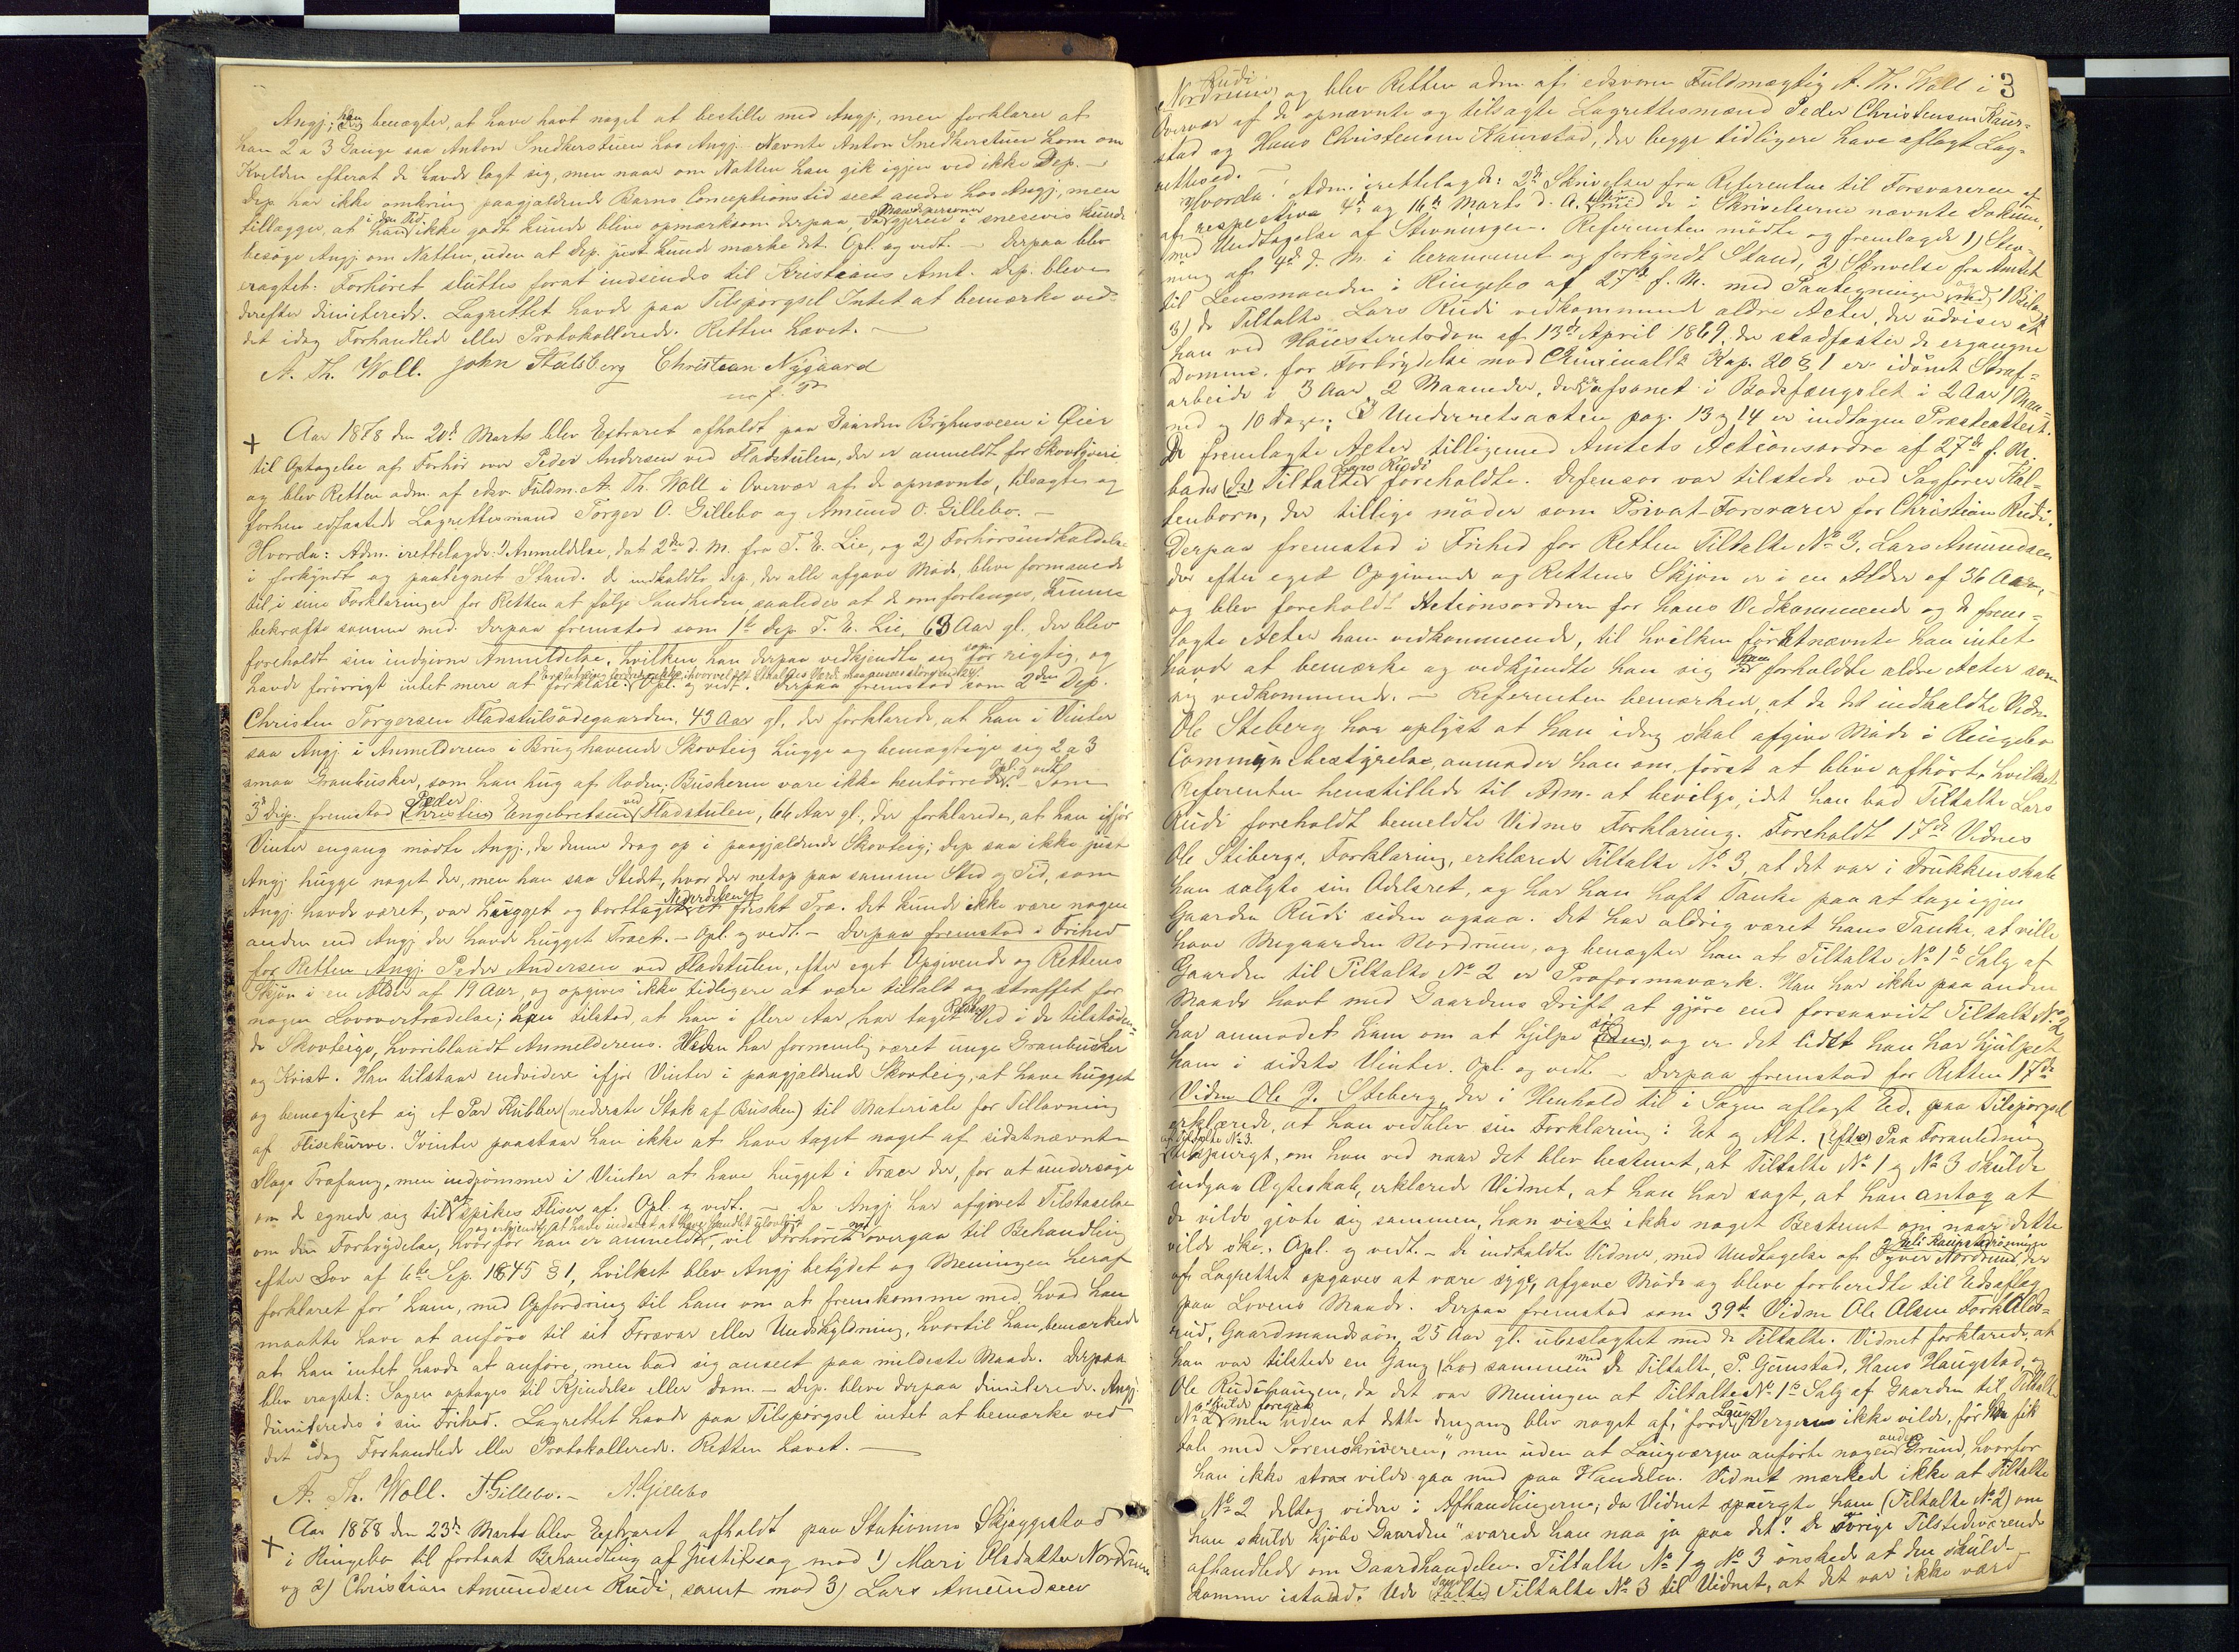 Angj; han benægter, at have havt noget at bestille med Angj, men forklarer at
han 2 a 3 Gange saa Anton Snedkerstuen hos Angj. Nævnte Anton Snedkerstuen kom om
Kvelden efterat de havde lagt sig, men naar om Natten han gik igjen ved ikke Dep. –
Dep. har ikke omkring paagjældende Barns Conceptionstid seet andre hos Angj, men
tillægger, at han i den Tid ikke godt kunde blive opmærksom derpaa, da Mandspersoner gjerne i snesevis kunde
besøge Angj. om Natten, uden at Dep. just kunde mærke det. Opl. og vedt. – Derpaa blev
eragtet: Forhøret sluttes forat indsendes til Kristians Amt. Dep. bleve
derefter dimiterede. Lagrettet havde paa Tilspørgsel Intet at bemærke ved
det idag Forhandlede eller Protokollerede. Retten hævet. –
A. Th. Woll. John Stalsberg Christian Nygaard
m. f. P.
Aar 1878 den 20de Marts blev Extraret afholdt paa Gaarden Bryhusveen i Øier
til Optagelse af Forhør over Peder Andersen ved Fladstulen, der er anmeldt for Skovtyveri
og blev Retten adm. af edsv. Fuldm. A. Th. Woll i Overvær af de opnævnte, tilsagte og
forhen edfæstede Lagrettesmænd Torger O. Gillebo og Amund O. Gillebo. –
Hvorda: Adm. irettelagde: 1) Anmeldelse, dat 2de d. M. fra T. E. Lie, og 2) Forhørsindkaldelse
i forkyndt og paategnet Stand. De indkaldte Dep, der alle afgave Møde, bleve formanede
til i sine Forklaringer for Retten at følge Sandheden saaledes at de om forlanges, kunne
bekræfte samme med. Derpaa fremstod som 1ste Dep. T. E. Lie, 63 Aar gl. der blev
foreholdt sin indgivne Anmeldelse, hvilken han derpaa vedkjendte sig som rigtig, og
havde forøvrigt intet mere at forklare. Opl. og vedt. Derpaa fremstod som 2den Dep.
Christen Torgersen Fladstulsødegaarden, 43 Aar gl, der forklarede, at han i Vinter
saa Angj i Anmelderens i Brug havende Skovteig hugge og bemægtige sig 2 a 3
smaa Granbusker, som han hug af Roden; Buskerne vare ikke hentørrede. Opl. og vedt. – Som
3de Dep. fremstod Peder Engebretsen ved Fladstulen, 66 Aar gl, der forklarede, at han ifjor
Vinter engang mødte Angj., da denne drog op i paagjældende Skovteig; Dep saa ikke just
Angj hugge noget der, men han saa Stedet, hvor der netop paa samme Sted og Tid, som
Angj. havde været, var hugget og borttaget Nederdelen af et friskt Træ. Det kunde ikke være nogen
anden end Angj der havde hugget Træet. – Opl. og vedt. – Derpaa fremstod i Frihed
for Retten Angj Peder Andersen ved Fladstulen, efter eget Opgivende og Rettens
Skjøn i en Alder af 19 Aar, og opgives ikke tidligere at være tiltalt og straffet for
nogen Lovovertrædelse; han tilstod, at han i flere Aar har taget Ved i de tilstøden-
de Skovteige, hvoriblandt Anmelderens. Veden har fornemlig været unge Granbusker
og Kvist. Han tilstaar endvidere ifjor Vinter i paagjældende Skovteig, at have hugget
og bemægtiget sig et Par Kubber (nederste Stok af Busken) til Materiale for Tillavning
af Flisekurve. Ivinter paastaar han ikke at have taget noget af sidstnævnte
Slags Træfang, men indrømmer i Vinter at have hugget i Træer der, for at undersøge
om de egnede sig til at spikes Fliser af. Opl. og vedt. – Da Angj. har afgivet Tilstaaelse
om den Forbrydelse, hvorfor han er anmeldt, vil Forhøret nu overgaa til Behandling
efter Lov af 6te Sep. 1845 § 1, hvilket blev Angj betydet og Meningen heraf
forklaret for ham, med Opfordring til ham om at fremkomme med, hvad han
maatte have at anføre til sit Forsvar eller Undskyldning, hvortil han bemærkede
at han intet havde at anføre, men bad sig anseet paa mildeste Maade. Derpaa
blev eragtet: Sagen optages til Kjendelse eller Dom. – Dep. bleve derpaa dimiterede. Angj
dimiteredes i sin Frihed. Lagrettet havde paa Tilspørgsel intet at bemærke ved
det idag Forhandlede eller Protokollerede. Retten hævet. –
A. Th. Woll. T Gillebo. – A Gillebo
Aar 1878 den 23de Marts blev Extraret afholdt paa Stationen Skjæggestad
i Ringebo til fortsat Behandling af Justitssag mod 1) Mari Olsdatter Nordrum
og 2) Christian Amundsen Rudi, samt mod 3) Lars Amundsen
3
Rudi og blev Retten adm. af edsvoren Fuldmægtig A. Th. Woll i
Overvær af de opnævnte og tilsagte Lagrettesmænd Peder Christensen Kaur-
stad og Hans Christensen Kaurstad, der begge tidligere have aflagt Lag-
rettesed. –
Hvorda: Adm. irettelagde: 2de Skrivelser fra Referenten til Forsvareren af
af respektive 4de og 16de Marts d. A. tilligemed de i Skrivelserne nævnte Dokum.
med Undtagelse af Stevningen. Referenten mødte og fremlagde 1) Stev-
ning af 4de d. M. i berammet og forkyndt Stand, 2) Skrivelse fra Amtet
til Lensmanden i Ringebo af 27de f. M. med Paategninger og med 1 Bilag
3) de Tiltalte Lars Rudi vedkommende ældre Acter, der udviser at
han ved Høiesteretsdom af 13de April 1869, der stadfæster de ergangne
Domme, for Forbrydelse mod Criminalls Kap. 20 § 1 er idømt Straf-
arbeide i 3 Aar, 2 Maaneder, der er afsonet i Bodsfængslet i 2 Aar 1 Maa-
ned og 10 Dage; I Underretsacten pag. 13 og 14 er indtagen Præsteattest.
De fremlagte Acter tilligemed Amtets Actionsordre af 27de f. M.
bades Tiltalte Lars Rudi foreholdte. Defensor var tilstede ved Sagfører Kal-
tenborn, der tillige møder som Privat-Forsvarer for Christian Rudi.
Derpaa fremstod i Frihed for Retten Tiltalte No 3, Lars Amundsen
der efter eget Opgivende og Rettens Skjøn er i en Alder af 36 Aar,
og blev foreholdt Actionsordren for hans Vedkommende og de frem-
lagte Acter ham vedkommende, til hvilken førstnævnte han intet
havde at bemærke og vedkjendte han sig forholdte ældre Acter som
sig vedkommende. – Referenten bemærkede, at da det indkaldte Vidne
Ole Steberg har oplyst at han idag skal afgive Møde i Ringebo
Communebestyrelse, anmoder han om først at blive afhørt, hvilket
Referenten henstillede til Adm. at bevilge, idet han bad Tiltalte Lars
Rudi foreholdt bemeldte Vidnes Forklaring. Foreholdt 17de Vidnes
Ole Stebergs, Forklaring, erklærede Tiltalte No 3, at det var i Drukkenskab
han solgte sin Odelsret, og har han haft Tanke paa at tage igjen
Gaarden Rudi siden ogsaa. Det har aldrig været hans Tanke, at ville
have Gaarden Nordrum, og benægter han at Tiltalte No 1s Salg af
Gaarden til Tiltalte No 2 er Proformaværk. Han har ikke paa anden
Maade havt med Gaardens Drift at gjøre end forsaavidt Tiltalte No 2
har anmodet ham om at hjelpe sig, og er det lidet han har hjulpet
ham i sidste Vinter. Opl. og vedt. – Derpaa fremstod for Retten 17de
Vidne Ole J. Steberg, der i Henhold til i Sagen aflagt Ed, paa Tilspørgsel
erklærede, at han vedblev sin Forklaring i Et og Alt. Paa Foranledning
af Tiltalte No 3.
tilspurgt, om han ved naar det blev bestemt, at Tiltalte No 1 og No 3 skulde
indgaa Ægteskab, erklærede Vidnet, at han har sagt, at han antog at
de vilde givte sig sammen, han vidste ikke noget Bestemt om naar dette
vilde ske. Opl. og vedt. – De indkaldte Vidner, med Undtagelse af Syver Nordrum, der
af Lagrettet opgaves at være syge, afgave Møde og bleve forberedte til Edsaflæg
paa Lovens Maade. Derpaa fremstod som 39te Vidne Ole Olsen Forkalds-
rud, Gaardmandssøn, 25 Aar gl. ubeslægtet med de Tiltalte. Vidnet forklarede, at
han var tilstede en Gang sammen med de Tiltalte, P. Gunstad, Hans Haugstad og
Ole Rudshaugen, da det var Meningen at Tiltalte No 1s Salg af Gaarden til Tiltalte
No 2 skulde foregaa men uden at dette dengang blev noget af, "fordi Laugvergen ikke vilde, før han fik
tale med Sorenskriveren," men uden at Laugværgen anførte nogen anden Grund, hvorfor
han ikke strax vilde gaa med paa Handelen. Vidnet mærkede ikke at Tiltalte
No 2 deltog videre i Afhandlingerne; da Vidnet spurgte ham (Tiltalte No 2) om
han skulde kjøbe Gaarden "svarede han naa ja paa det". De øvrige Tilstedeværende
afhandlede om Gaardhandelen. Tiltalte No 1 og No 3 ønskede at den skulde
komme istand. Ude sagde Tiltalte No 3 til Vidnet, at det var ikke værd